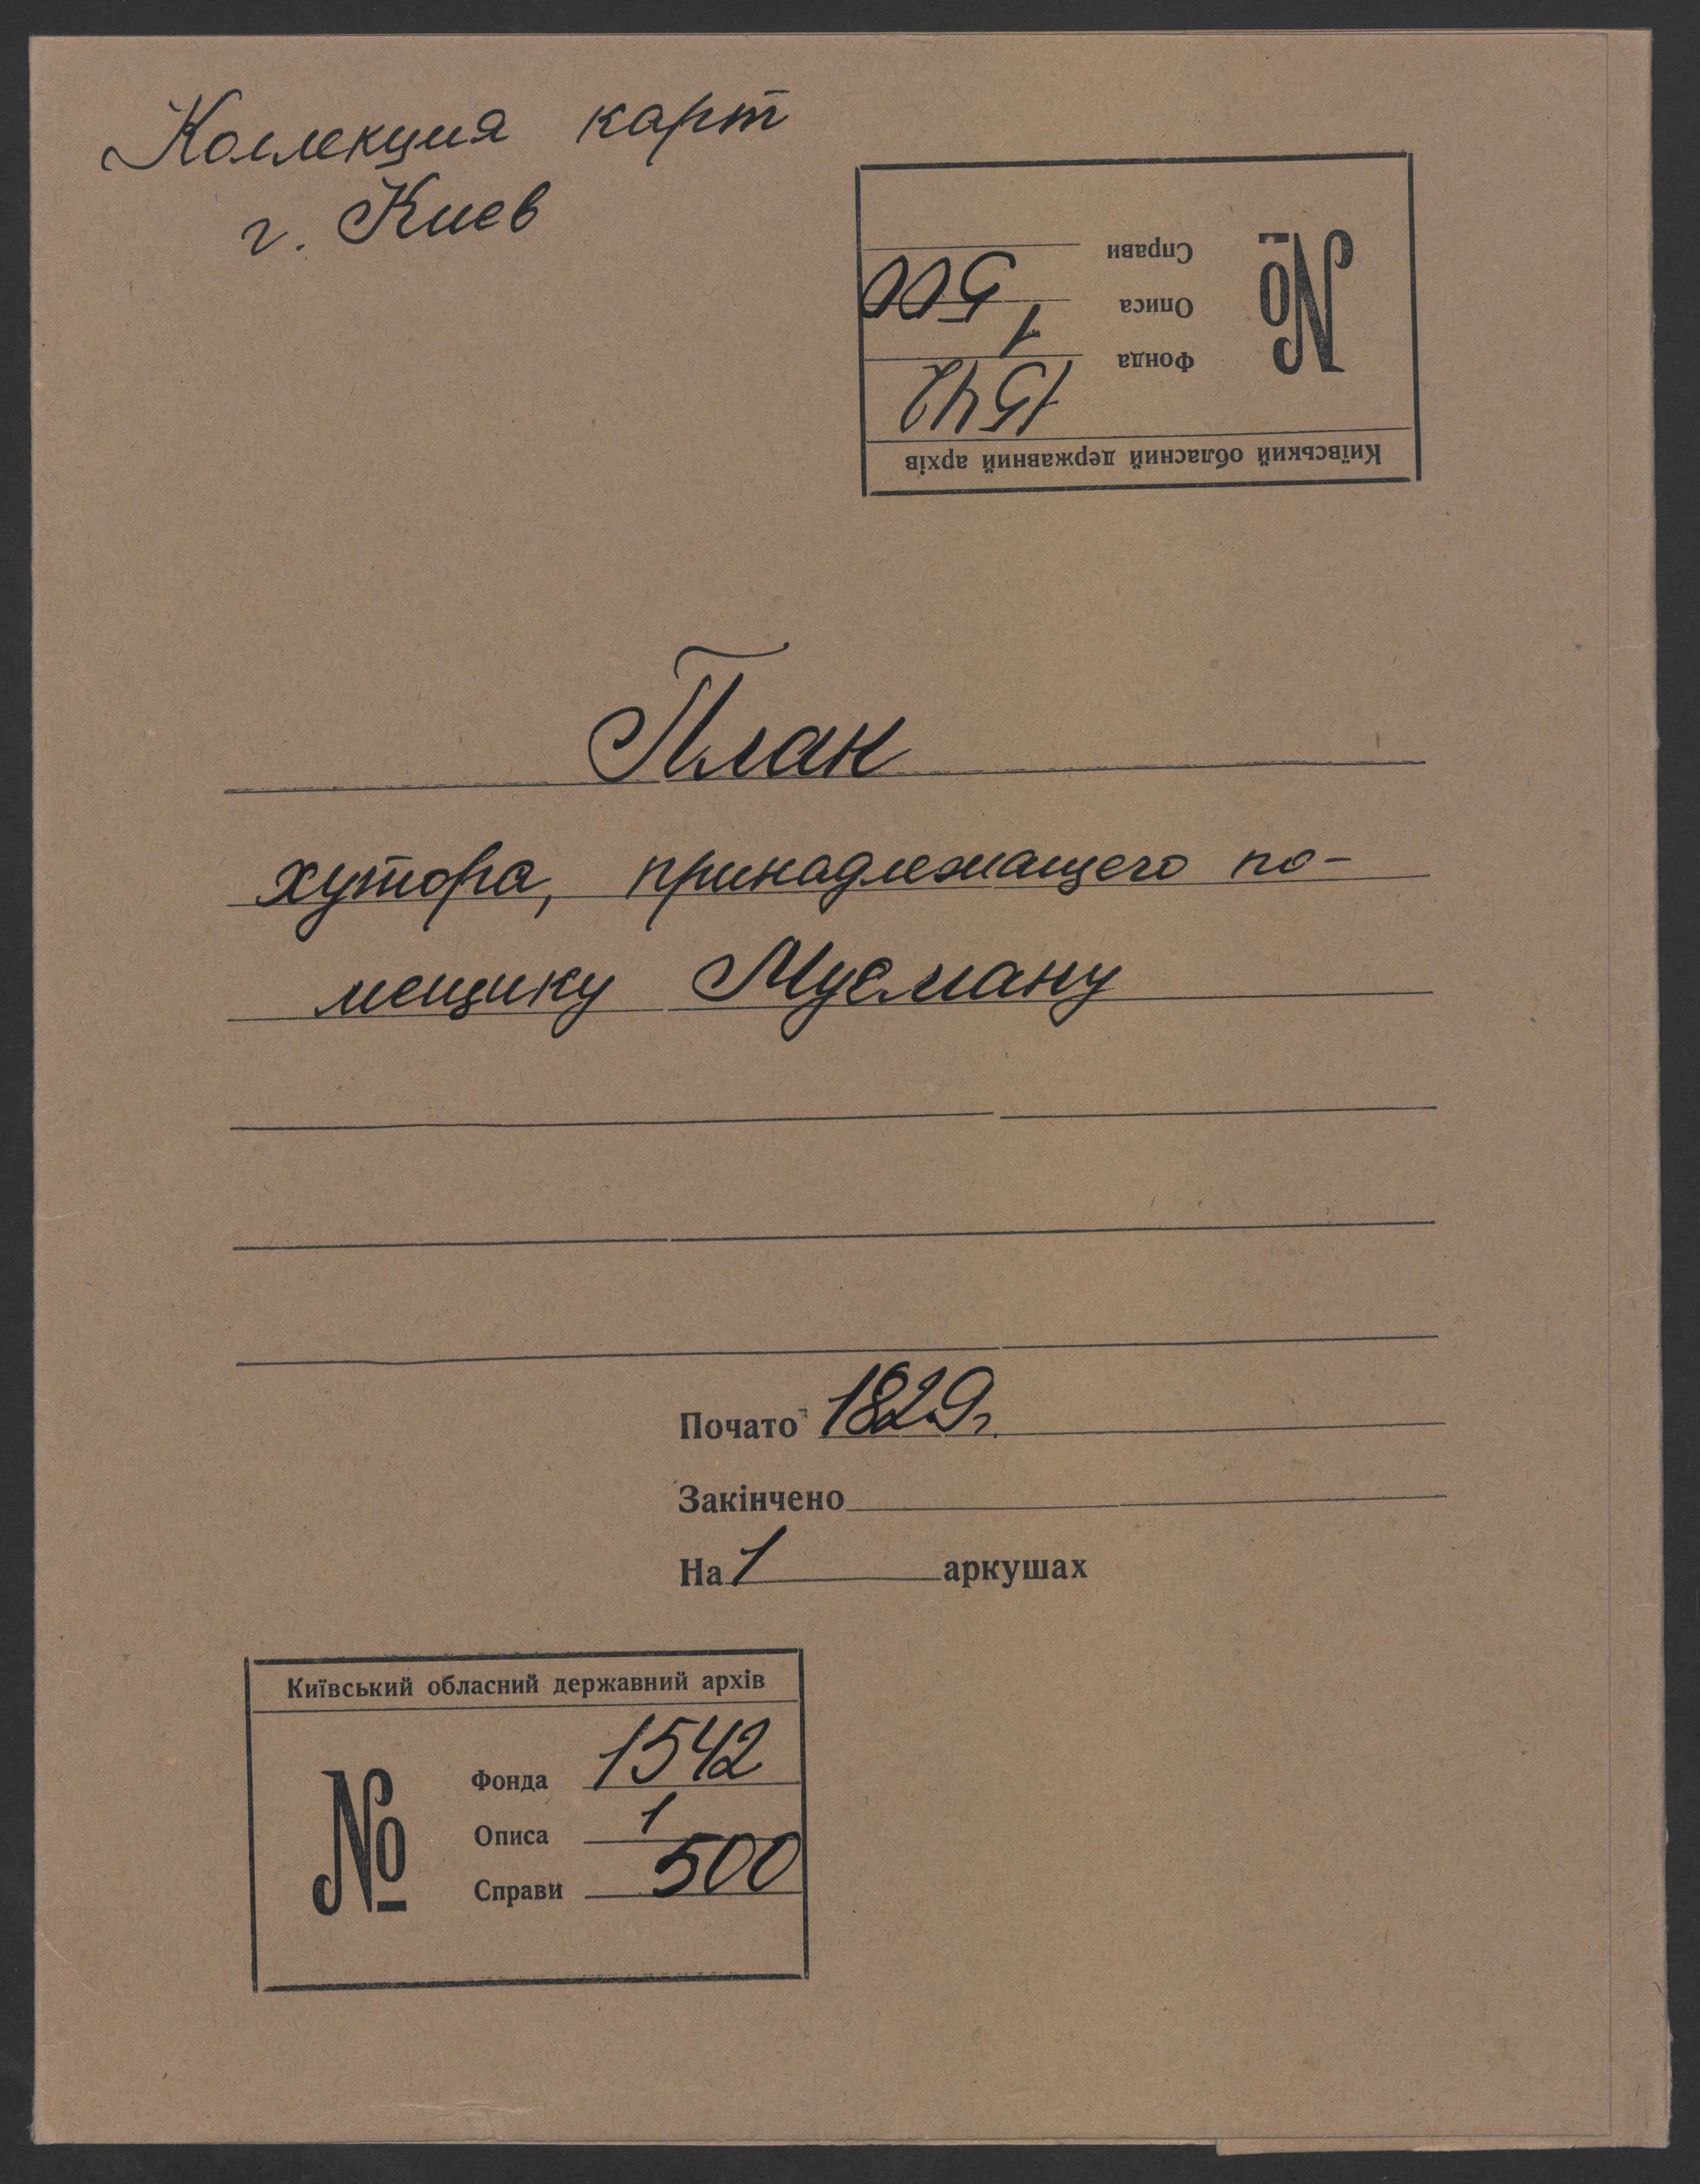 Коллекция карт
г. Киев
Київський обласний державний архів
№
Фонда 1542
Описа 1
Справи 500
План
хутора, принадлежащего по-
мещику Мусману
Почато 1829г.
Закінчено
На 1 аркушах
Київський обласний державний архів
№
Фонда 1542
Описа 1
Справи 500